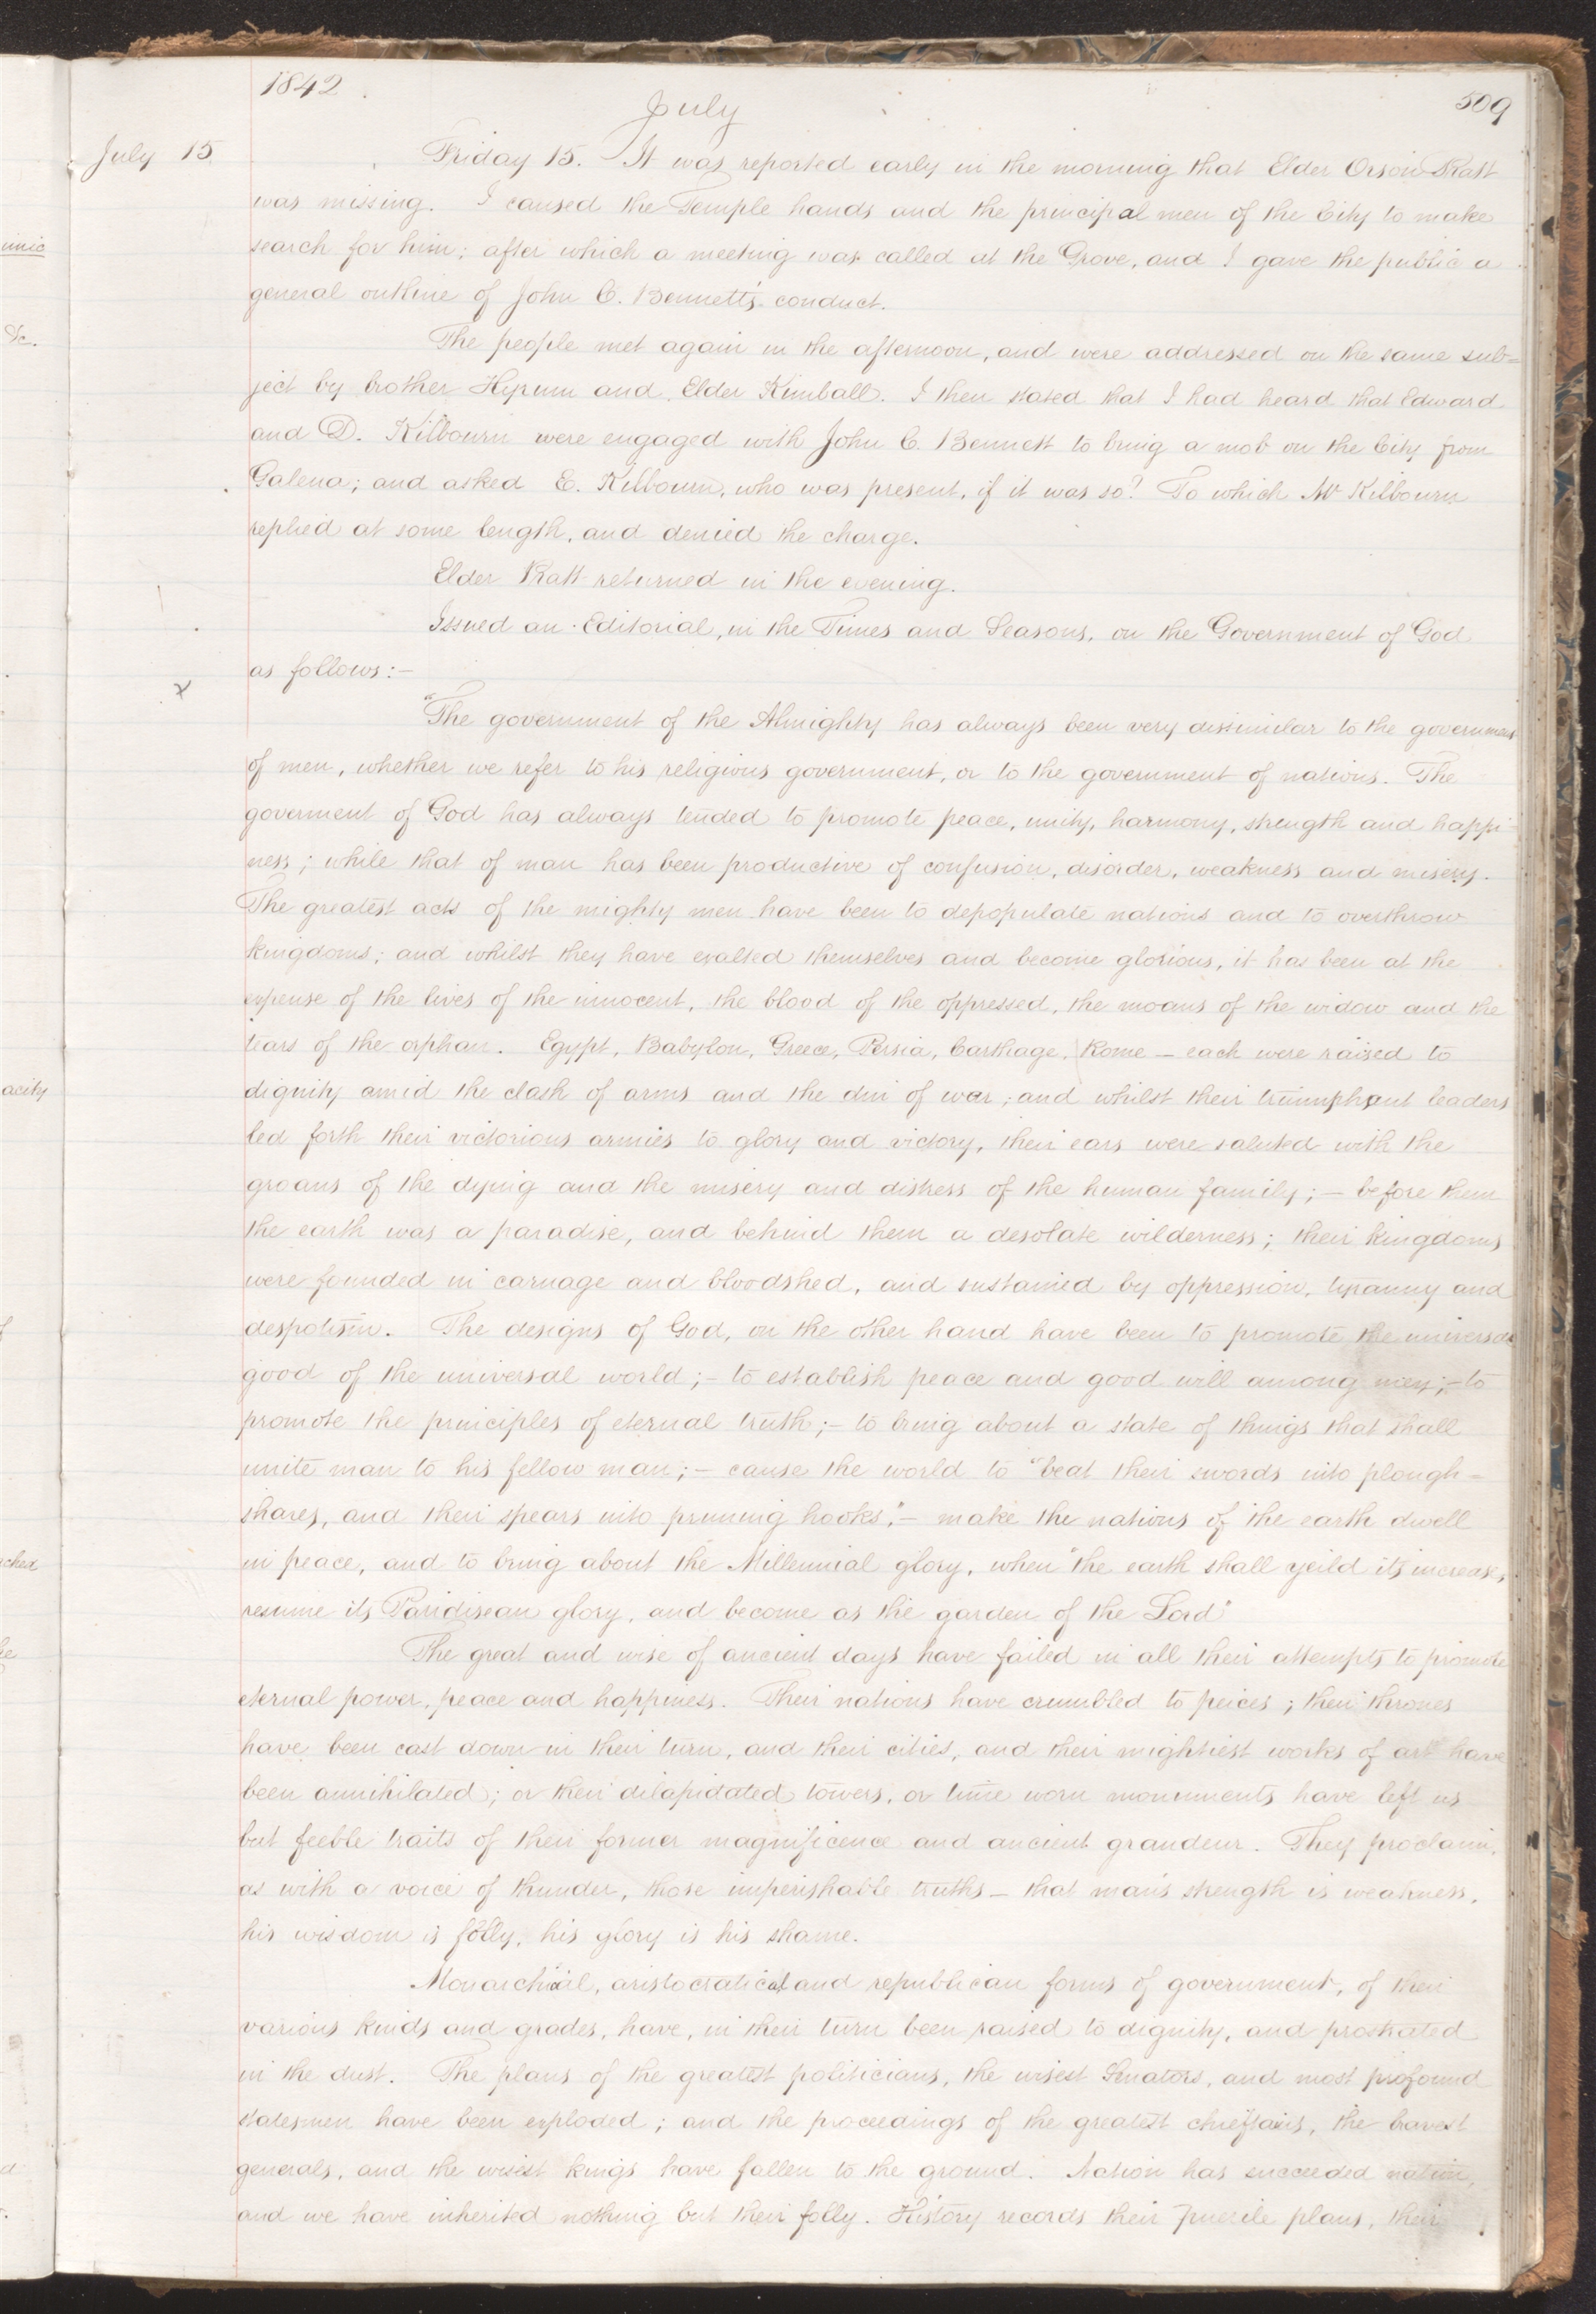 1842.
July
509
July 15
Friday 15. It was reported early in the morning that Elder Orson Pratt
was missing. I caused the Temple hands and the principal men of the City to make
search for him; after which a meeting was called at the Grove, and I gave the public a
general outline of John C. Bennett's conduct.
The people met again in the afternoon, and were addressed on the same sub=
ject by brother Hyrum and Elder Kimball. I then stated that I had heard that Edward
and D. Kilbourn were engaged with John C. Bennett to bring a mob on the City from
Galena; and asked E. Kilbourn, who was present, if it was so? To which Mr Kilbourn
replied at some length, and denied the charge.
Elder Pratt returned in the evening.
Issued an Editorial, in the Times and Seasons, on the Government of God
as follows:—
"The government of the Almighty has always been very dissimilar to the government
of men, whether we refer to his religious government, or to the government of nations. The
goverment of God has always tended to promote peace, unity, harmony, strength and happi-
ness; while that of man has been productive of confusion, disorder, weakness and misery.
The greatest acts of the mighty men have been to depopulate nations and to overthrow
kingdoms; and whilst they have exalted themselves and become glorious, it has been at the
expense of the lives of the innocent, the blood of the oppressed, the moans of the widow and the
tears of the orphan. Egypt, Babylon, Greece, Persia, Carthage, Rome — each were raised to
dignity amid the clash of arms and the din of war; and whilst their triumphant leaders
led forth their victorious armies to glory and victory, their ears were saluted with the
groans of the dying and the misery and distress of the human family; — before them
the earth was a paradise, and behind them a desolate wilderness; their kingdoms
were founded in carnage and bloodshed, and sustained by oppression, tyranny and
despotism. The designs of God, on the other hand have been to promote the universal
good of the universal world; — to establish peace and good will among men; — to
promote the principles of eternal truth; — to bring about a state of things that shall
unite man to his fellow man; — cause the world to "beat their swords into plough=
shares, and their spears into pruning hooks", — make the nations of the earth dwell
in peace, and to bring about the Millennial glory, when "the earth shall yeild its increase,
resume its Paridisean glory, and become as the garden of the Lord"
The great and wise of ancient days have failed in all their attempts to promote
eternal power, peace and happiness. Their nations have crumbled to peices; their thrones
have been cast down in their turn, and their cities, and their mightiest works of art have
been annihilated; or their dilapidated towers, or time worn monuments have left us
but feeble traits of their former magnificence and ancient grandeur. They proclaim,
as with a voice of thunder, those imperishable truths — that man's strength is weakness,
his wisdom is folly, his glory is his shame.
Monarchial, aristocratical and republican forms of government, of their
various kinds and grades, have, in their turn been raised to dignity, and prostrated
in the dust. The plans of the greatest politicians, the wisest Senators, and most profound
statesmen have been exploded; and the proceedings of the greatest chieftains, the bravest
generals, and the wisest kings have fallen to the ground. Nation has succeeded nation,
and we have inherited nothing but their folly. History records their puerile plans, their